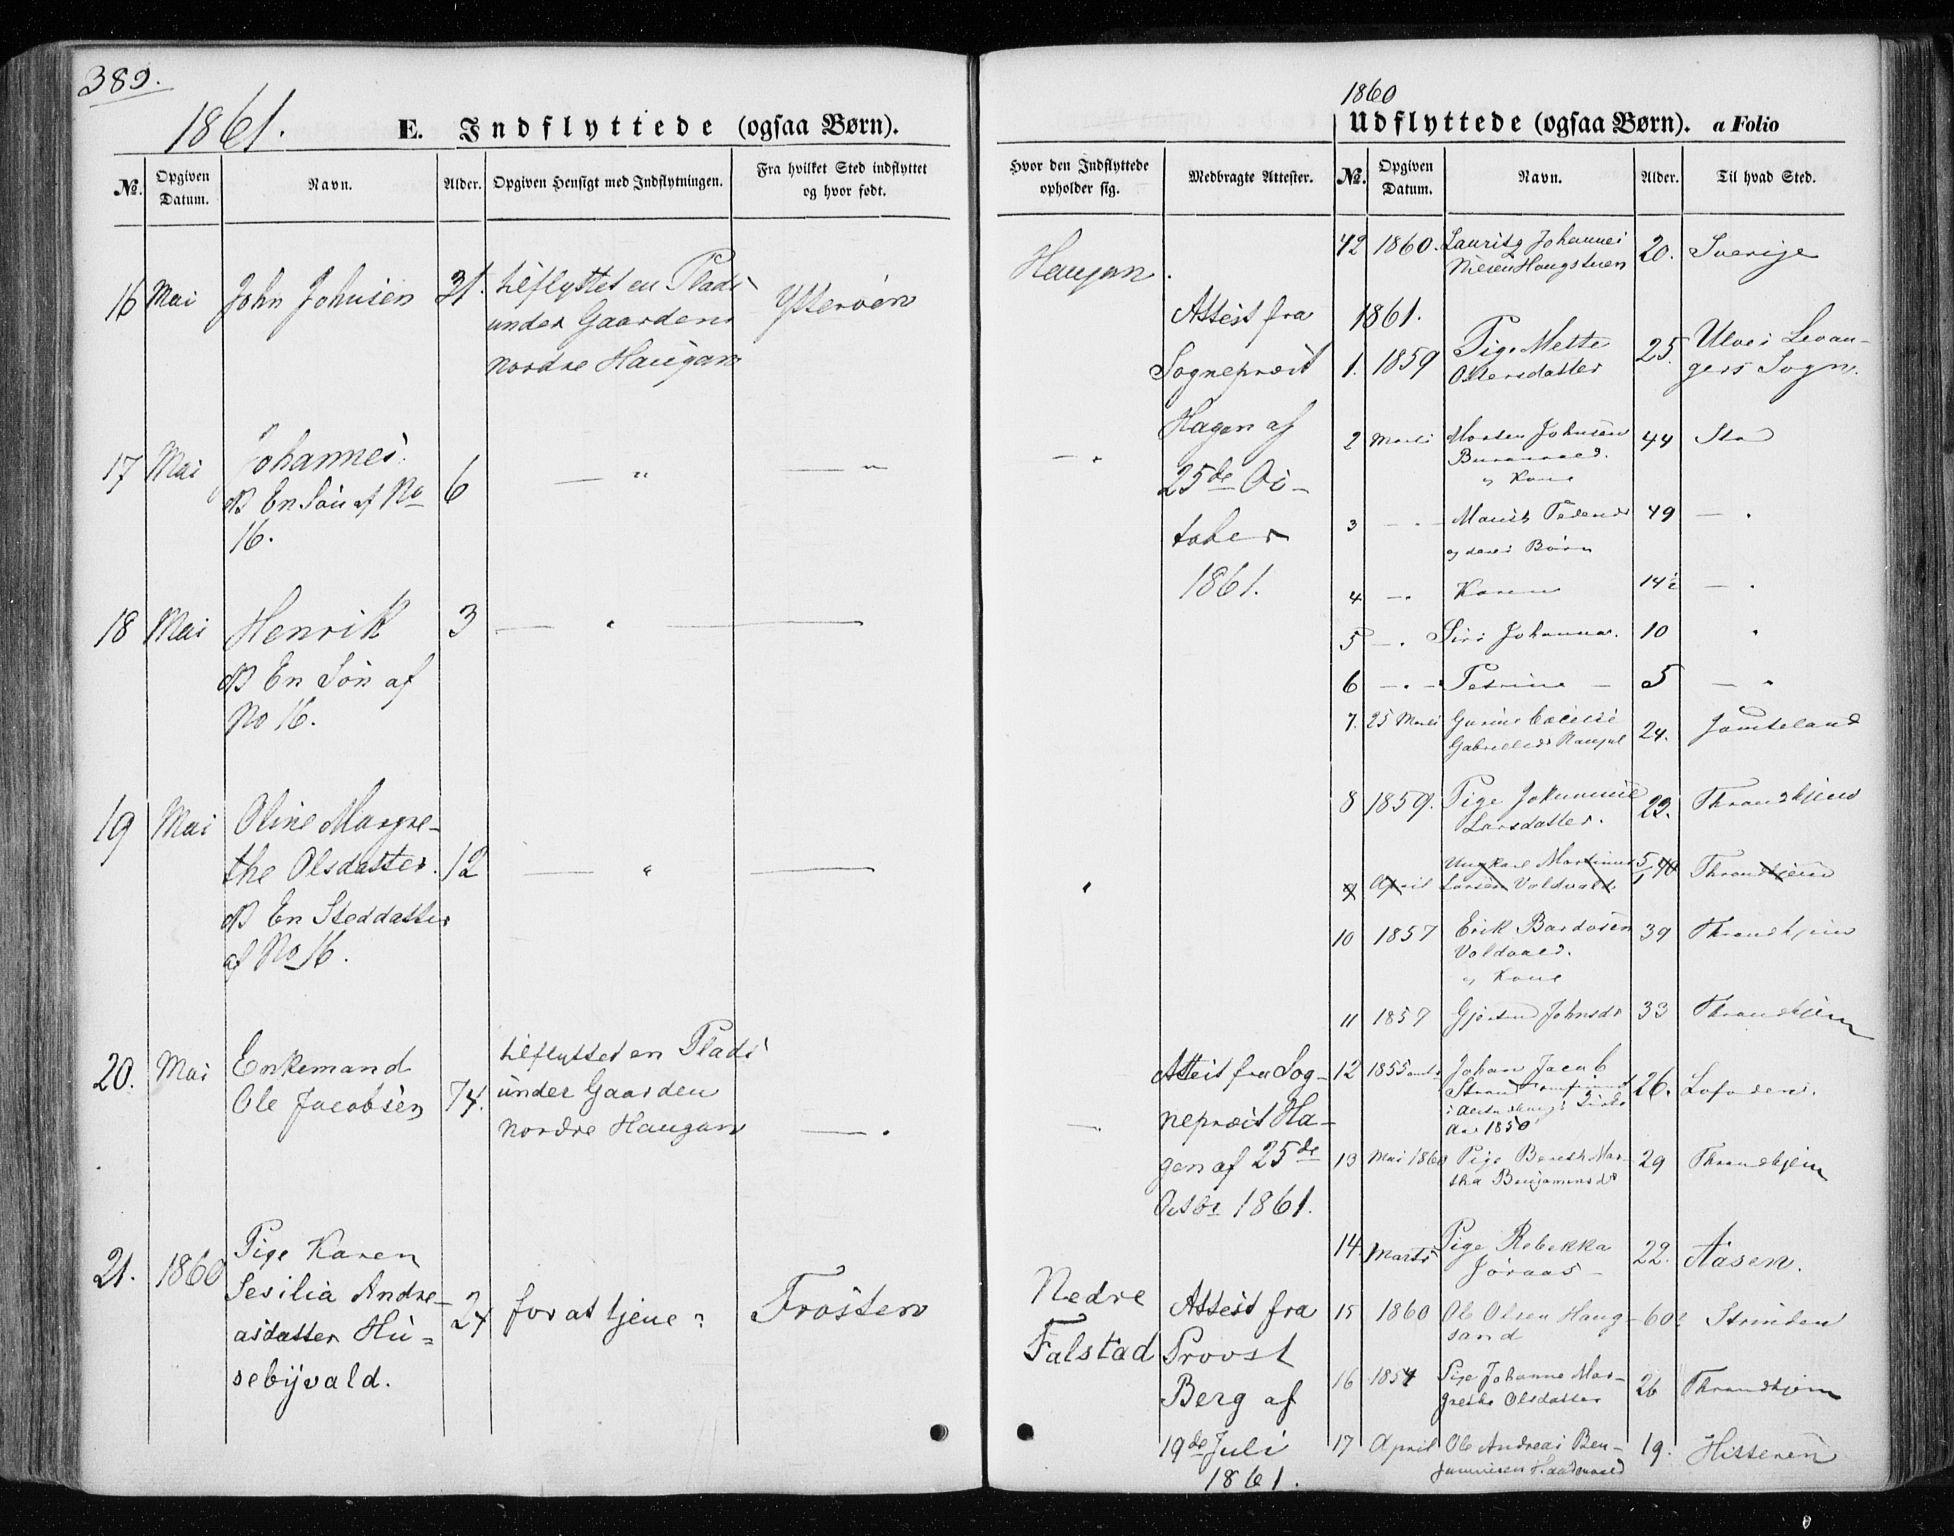 389.
1861.
E. Indflyttede (ogsaa Børn).
No. Opgiven Datum. Navn. Alder. Opgiven Hensigt med Indflytningen. Fra hvilket Sted indflyttet og hvor født.
16 Mai John Johnsen 31. tilflyttet en Plads Ytterøen
under Gaarden
nordre Haugan
17 Mai Johannes. 6 — " — "
NB En Søn af No
16.
18 Mai Henrik 3 — " —
NB En Søn af
No 16.
19 Mai Oline Margre-
the Olsdatter. 12 — " —
NB En Steddatter
af No 16.
20. Mai Enkemand tilflyttet en Plads
Ole Jacobsen 74. under Gaarden
nordre Haugan — .
21. 1860 Pige Karen
Sesilia Andre-
asdatter Hu= 24 for at tjene Frosten
sebyvald.
1860
Udflyttede (ogsaa Børn). a Folio
Hvor den Indflyttede opholder sig. Medbragte Attester. No. Opgiven Datum. Navn. Alder. Til hvad Sted.
Haugan.
Attest fra
Sogneprest
Hagen af
25de Oc-
tober
1861.
Attest fra Sog-
neprest Ha-
gen af 25de
Octbr 1861.
Nedre
Falstad
Attest fra
Provst
Berg af
19de Juli
1861.
42 1860. Lauritz Johannes 20. Sverige
Nielsen Haugstuen
1861.
1. 1859 Pige Mette 25. Ulves Levan-
Ottersdatter gers Sogn.
2 Marts Morten Johnsen 44 Stod
Buranvald.
og Kone
3 — . — Marit Pedersd 49 — .
og deres Børn
4 — . Karen 14½ — .
5 — . Siri Johanna. 10 .
6 — . — Petrine — 5 — .
7. 25 Marts Gurine Cecilie 24. Jamteland
Gabrielsd
8 1859. Pige Larsdatter. 23. Throndhjem
9 April Ungkarl Martinus Throndhjem
Larsen Voldvald
10 1857 Erik Bardosen 39 Throndhjem
Voldvald.
og Kone
11 1857 Gjertrud Johnsdr 33 Throndhjem
12 1855 Johan Jacob 26. Lofoden.
Strand
Aar 1850
13 Mai 1860 Pige Bereth Mar- 29 Throndhjem
tha Benjaminsdr
14. Marts Pige Rebekka 22. Aasen.
Joraas —
15 1860 Ole Olsen Haug- 60 Strinden
sand
16 1854 Pige Johanne Mar- 26 Throndhjem
grethe Olsdatter
17 April Ole Andreas Ben- 19. Hitteren
jaminsen